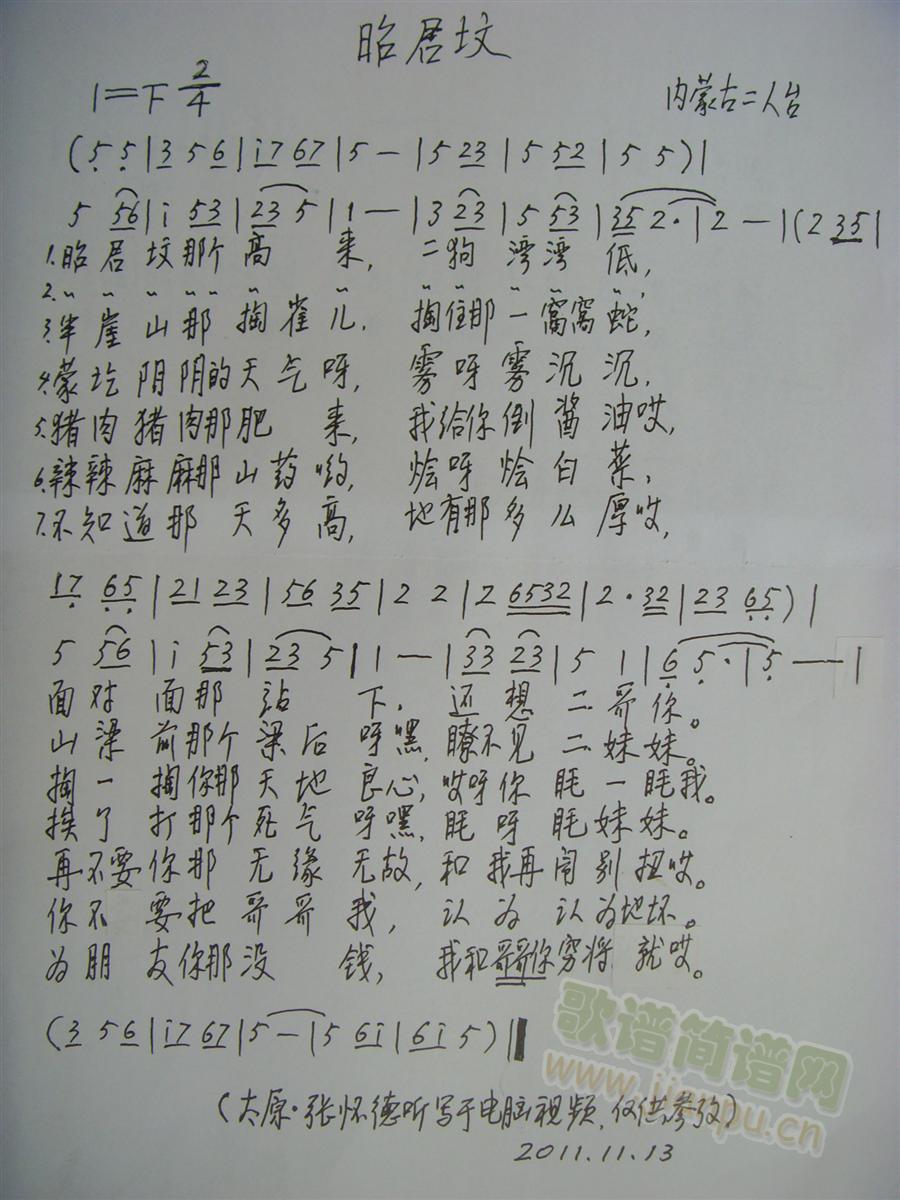 昭君坟
1=下 2/4
内蒙古二人台
(5 5|3 5 6|i7 67|5 —|5 23|5 52|5 5)|
5 56|i 53|23 5|1 —|3 23|5 53|35 2·|2 —|(2 35|
1.昭君坟那个高 来, 二狗湾湾低,
2.〃 〃 〃 〃 〃 〃 〃, 〃 〃 〃 〃 〃,
3.半崖山那掏雀儿, 掏住那一窝窝蛇,
4.蒙圪阴阴的天气呀, 雾呀雾沉沉,
5.猪肉猪肉那肥 来, 我给你倒酱油哎,
6.辣辣麻麻那山药哟, 烩呀烩白菜,
7.不知道那天多高, 地有那多么厚哎,
17 65|21 23|56 35|2 2|2 6532|2·32|23 65)|
5 56|i 53|23 5|1 —|33 23|5 1|6 5·|5 —|
面对面那站 下, 还想二哥你。
山梁前那个梁后呀嘿, 瞭不见二妹妹。
掏一掏你那天地良心, 哎呀你眊一眊我。
挨了打那个死气呀嘿, 眊呀眊妹妹。
再不要你那无缘无故, 和我再闹别扭哎。
你不要把哥哥我, 认为认为地坏。
为朋友你那没 钱, 我和哥哥你穷将就哎。
(3 5 6|i7 67|5 —|5 6i|6i 5)‖
(太原·张怀德听写于电脑视频,仅供参考)
2011.11.13
歌谱简谱网
www.jianpu.cn